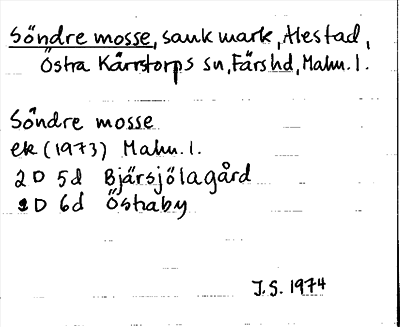 Söndre mosse, sank mark, Alestad,
Östra Kärrstorps sn, Färs hd, Malm. l.
Söndre mosse
ek (1973) Malm. l.
2 D 5d Bjärsjölagård
2 D 6d Östraby
J.S. 1974